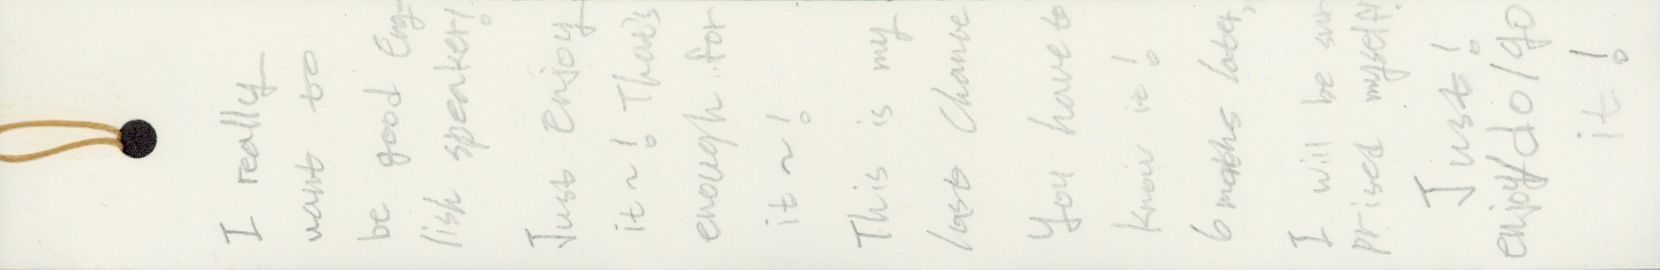 I really
want to
be good Eng-
lish speaker!
Just enjoy
it~! That's
enough for
it~!
This is my
last Chance
You have to
know it!
6 months later,
I will be sur
prised myself!
Just!
enjoy/do/go
it!